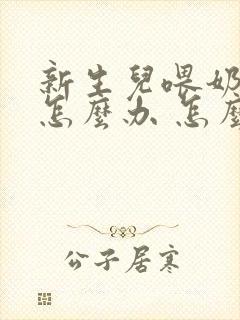 新生兒喂奶
怎麼办 怎麼
公子居寒